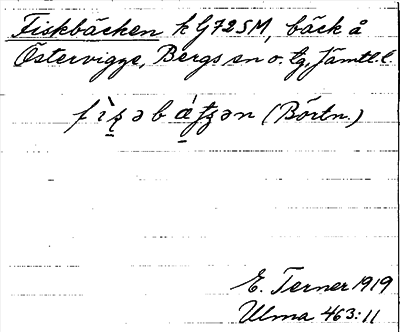 Fiskbäcken k G72SM, bäck å
Östervigge, Bergs sn o. tg, Jämtl. l.
(Börtn.)
E. Terner 1919
Ulma 463:11